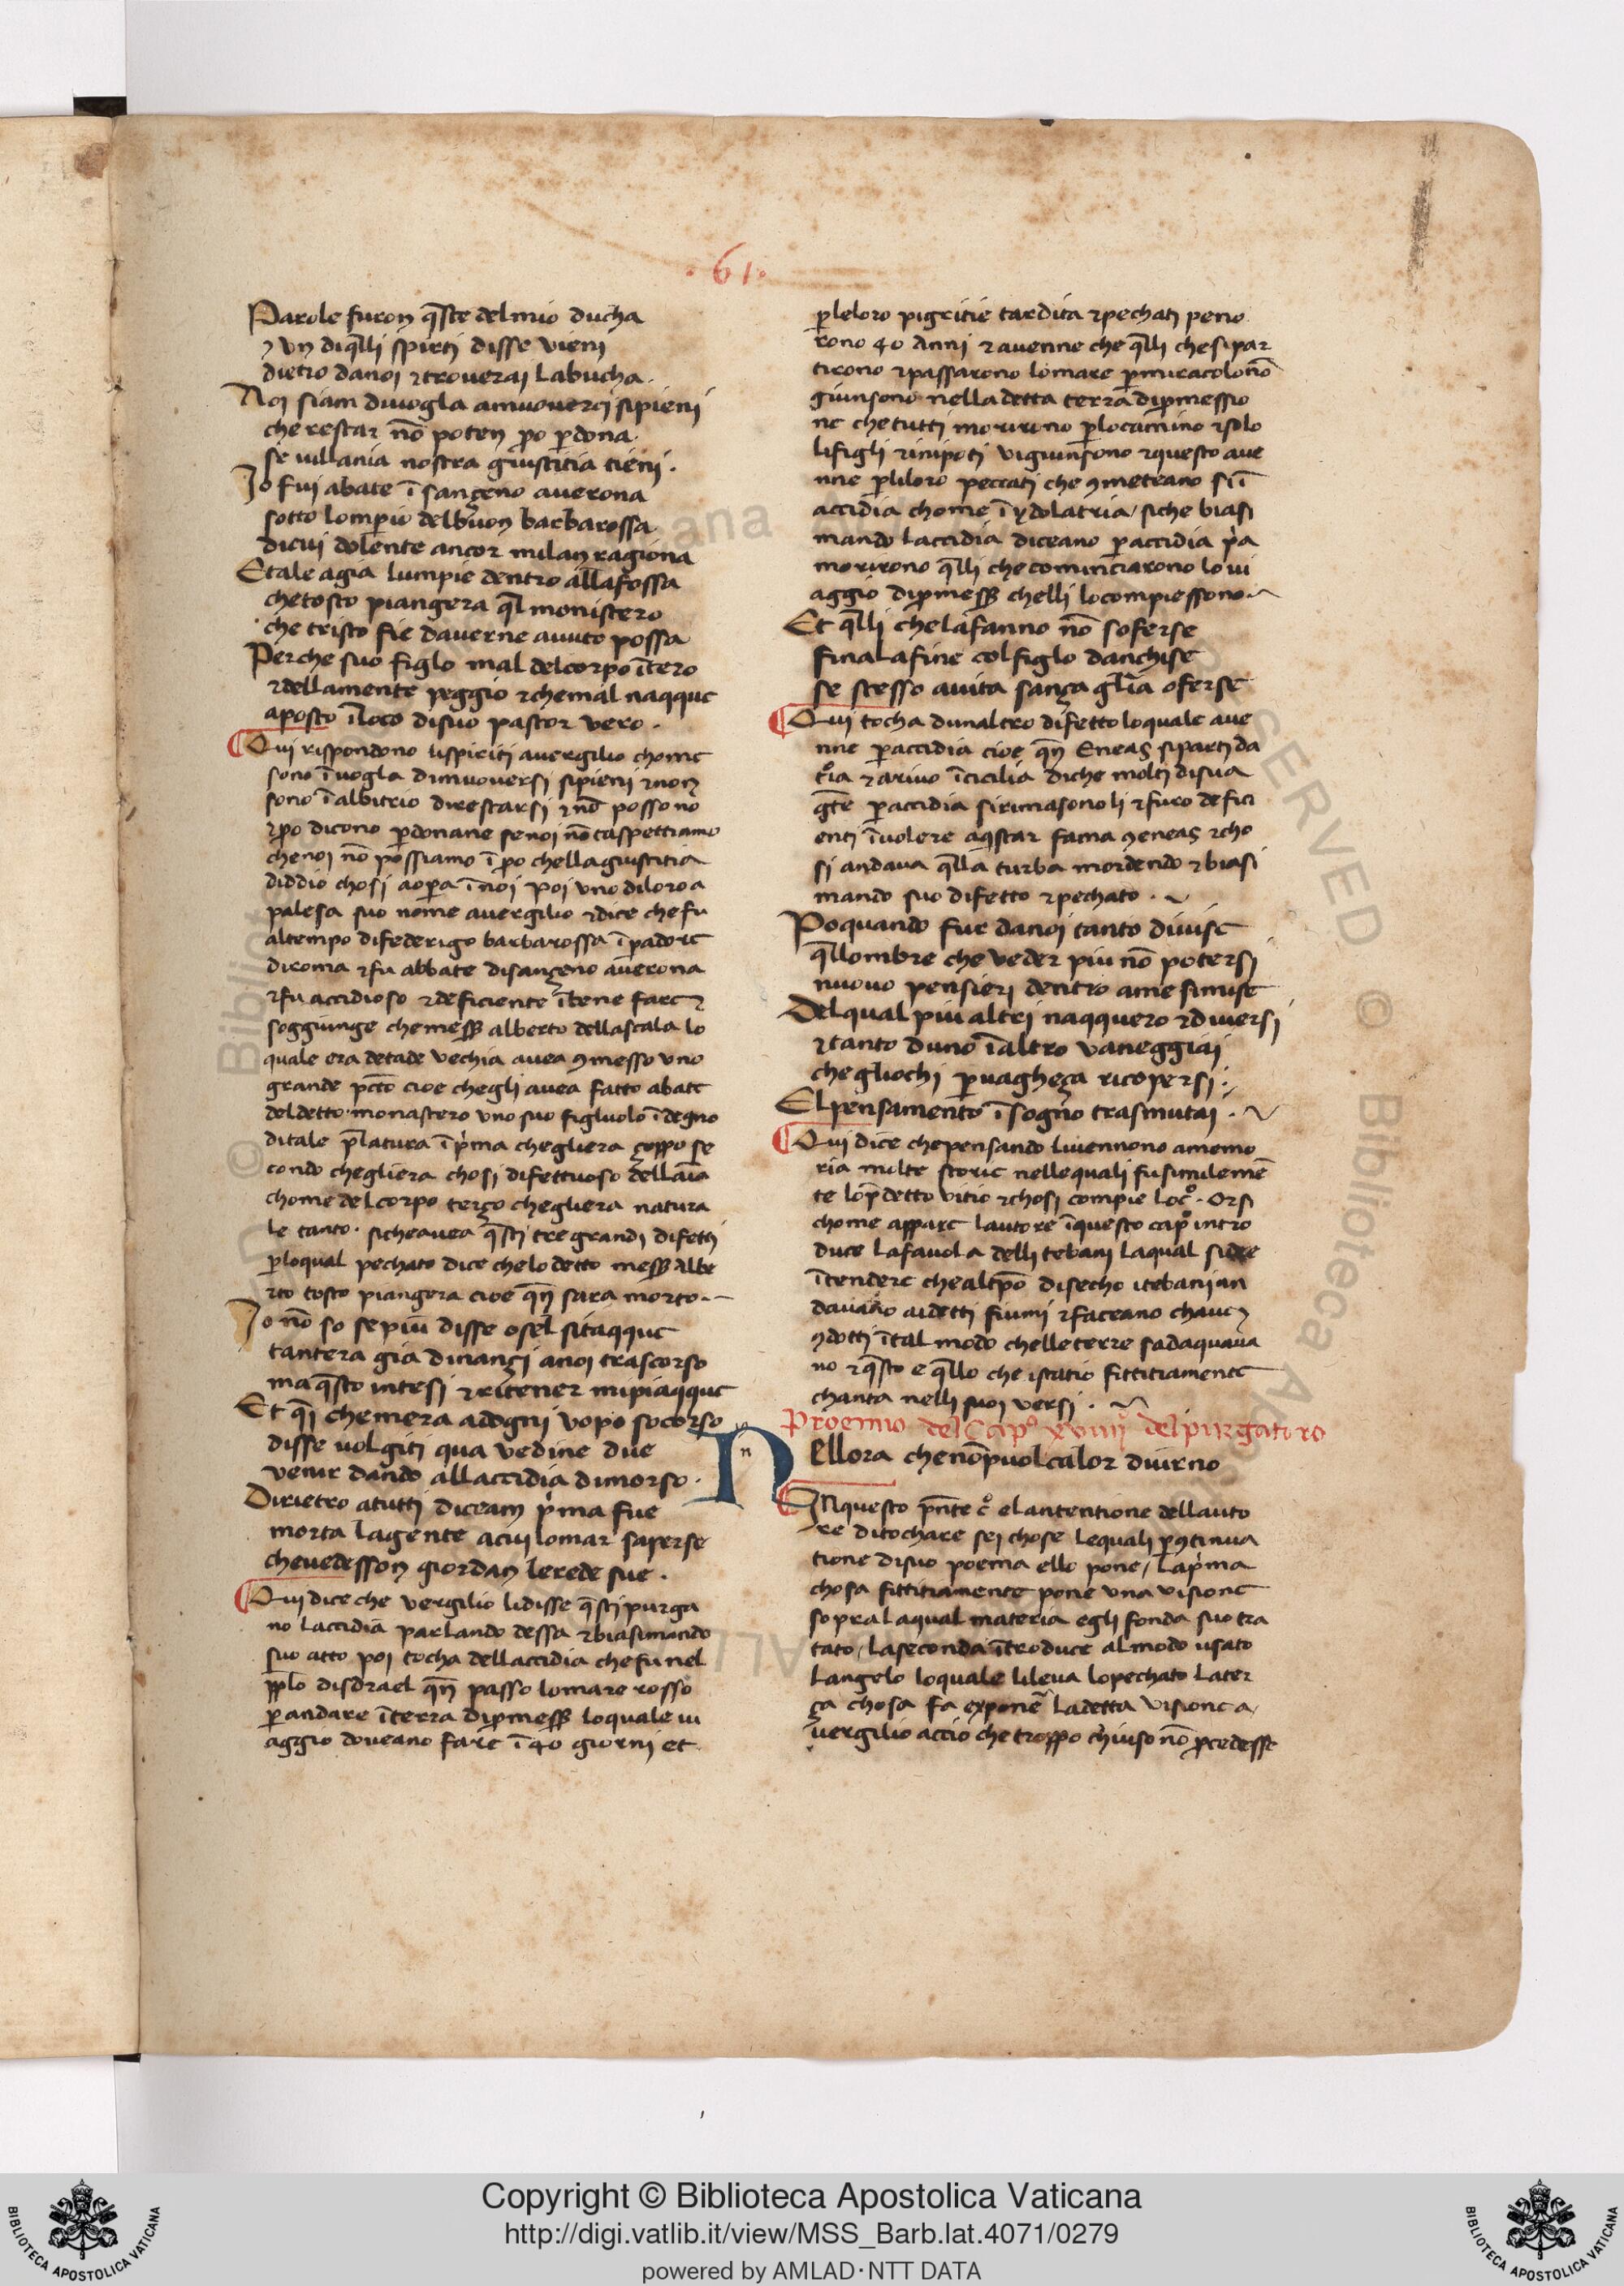 .61.
Parole furon q̄ste del mio ducha
⁊ un diq̄lli spirti disse vieni
dietro danoi ⁊troverai labucha.
Noi siam divogla amuoverci sipieni
che restar nō poten p̄o p̄dona.
se villania nostra giustitia tieni.
Jo fui abate ī sançeno averona
sotto lompio delbuon barbarossa
dicui dolente ancor milan ragiona
Etale agia lumpie dentro allafossa
chetosto piangera q̄l monistero
che tristo fie daverne avuto possa
Perche suo figlo mal delcorpo ītero
⁊dellamente peggio ⁊chemal naqque
aposto īloco disuo pastor vero.
Qui rispondono lispiriti avergilio chome
sono īvogla dimuoversi sipieni ⁊non
sono ī albitrio direstarsi ⁊nō possono
⁊p̄o dicono p̄donane senoi nō taspettiamo
chenoi nō possiamo ī p̄o chellagiustitia
diddio chosi aop̄a ī noi poi uno diloro a
palesa suo nome avergilio ⁊dice chefu
altempo difederigo barbarossa īp̄adore
diroma ⁊fu abbate disançeno averona
⁊fu accidioso ⁊deficiente ībene fare ⁊
soggiunge chemess̄ alberto dellascala lo
quale era detade vechia avea ꝯmesso uno
grande pc̄to cioe chegli avea fatto abate
deldetto monastero uno suo figluolo īdegno
ditale p̄latura īp̄ma chegliera çoppo se
condo chegliera chosi difettuoso dellaīa
chome delcorpo terço chegliera natura
le tanto. sicheavea q̄sti tre grandi difetti
p̄loqual pechato dice chelo detto mess̄ Albe
rto tosto piangera cioe qn̄ sara morto.
Jo nō so sepiu disse osel sitaqque
tantera gia dinançi anoi trascorso
ma q̄sto intesi ⁊ritener mipiaqque
Et q̄i chemera adogni vopo socorso
disse volgiti qua vedine due
venir dando allaccidia dimorso.
Dirietro atutti dicean p̄ma fue
morta lagente acui lomar saperse
chevedesson giordan lerede sue.
Qui dice che vergilio lidisse q̄sti purga
no laccidia parlando dessa ⁊biasimando
suo atto poi tocha dellaccidia chefu nel
pplo disdrael qn̄ passo lomare rosso
p̄andare īterra dip̄mess̄ loquale vi
aggio doveano fare ī 40 giorni et
p̄leloro pigritie tardita ⁊pechati peno
rono 40 Anni ⁊avenne che q̄lli chesipar
tirono ⁊passarono lomare p̄miracolo nō
giunsono nelladetta terra dip̄messio
ne chetutti morirono p̄locamino ⁊solo
lifigli ⁊inipoti vigiunsono ⁊questo ave
nne p̄liloro peccati che ꝯmeteano si ī
accidia chome ī ydolatria / siche biasi
mando laccidia diceano p̄accidia p̄a
morirono q̄lli checominciarono lo vi
aggio dip̄mess̄ chelli locompiessono.
Et q̄lli chelafanno nō soferse
finalafine colfiglo danchise
se stesso avita sança glīa oferse
Qui tocha dunaltro difetto loquale ave
nne p̄accidia cioe qn̄ Eneas siparti da
troia ⁊arivo īcicilia diche molti disua
gēte p̄accidia sirimasono li ⁊furo defici
enti īvolere aqstar fama ꝯeneas ⁊cho
si andava q̄lla turba mordendo ⁊biasi
mando suo difetto ⁊pechato.
Poquando fur danoi tanto divise
q̄llombre che veder piu nō potersi
nuovo pensieri dentro ame simise
Delqual piu altri naqquero ⁊diversi
⁊tanto duno īaltro vaneggiai
che gliochi p̄vagheça ricopersi.
El pensamento īsogno trasmutai.
Qui dice chepensando livennono amemo
ria molte storie nellequali fusimilemē
te lop̄detto vitio ⁊chosi compie loc̊. Orsi
chome appare lautore īquesto cap̊ intro
duce lafavola delli tebani laqual sidee
ītendere chealtp̄o disecho itebani an
davano aidetti fiumi ⁊faceano chave ⁊
ꝯdotti ītal modo chelleterre sadaquava
no ⁊q̄sto e q̄llo che istatio fittitiamente
chanta nelli suoi versi.
Proemio del Cap̊ xviiij del purgatoro
Nellora chenōpuolcalor diurno
INquesto pn̄te c̊ elantentione dellauto
re ditochare sei chose lequali p̄ꝯtinua
tione disuo poema ello pone / lap̄ma
chosa fittitiamente pone una visione
sopralaqual materia egli fonda suo tra
tato / laseconda ītroduce almodo usato
langelo loquale lileva lopechato later
ça chosa fa exponē ladetta visione a /
vergilio accio che troppo chiuso nō p̄cedesse
Copyright © Biblioteca Apostolica Vaticana
http://digi.vatlib.it/view/MSS_Barb.lat.4071/0279
powered by AMLAD·NTT DATA
BIBLIOTECA APOSTOLICA VATICANA
BIBLIOTECA APOSTOLICA VATICANA